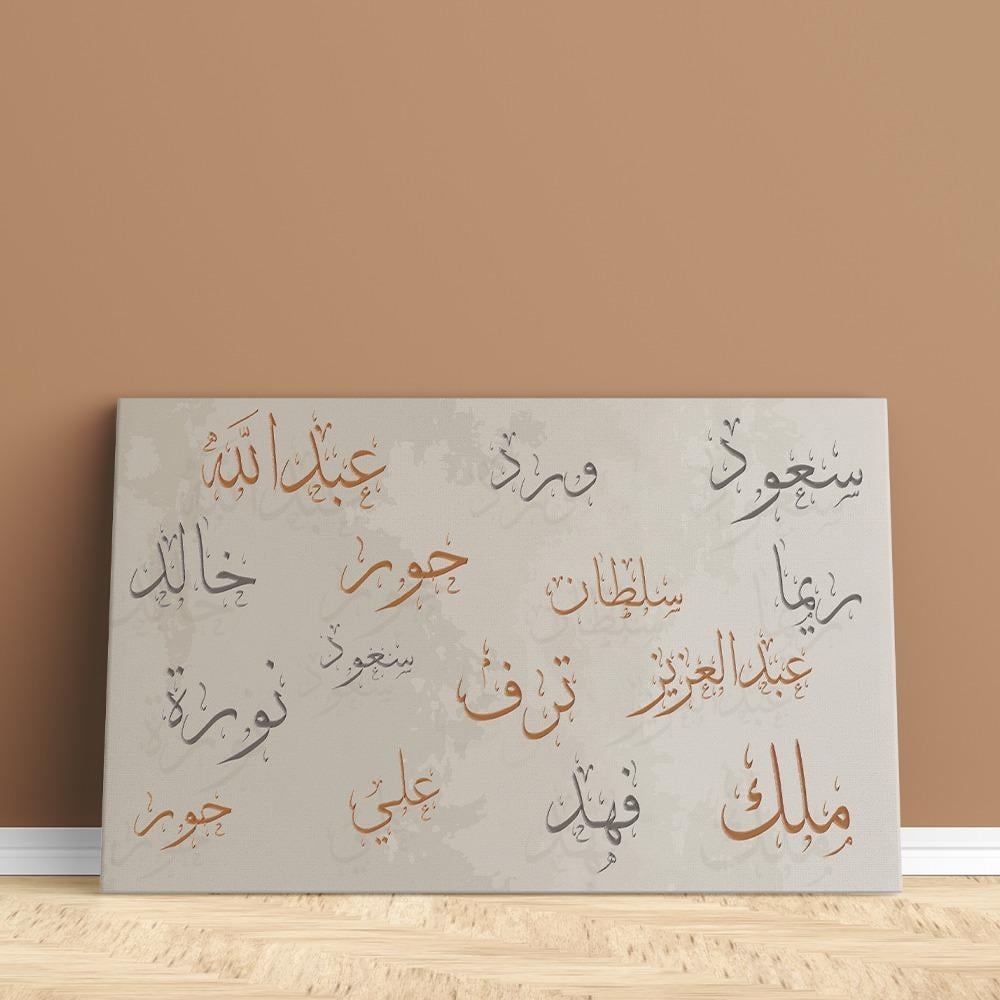 سعود ورد عبدالله
ريما سلطان حور خالد
عبدالعزيز ترف سعود نورة
ملك فهد علي حور